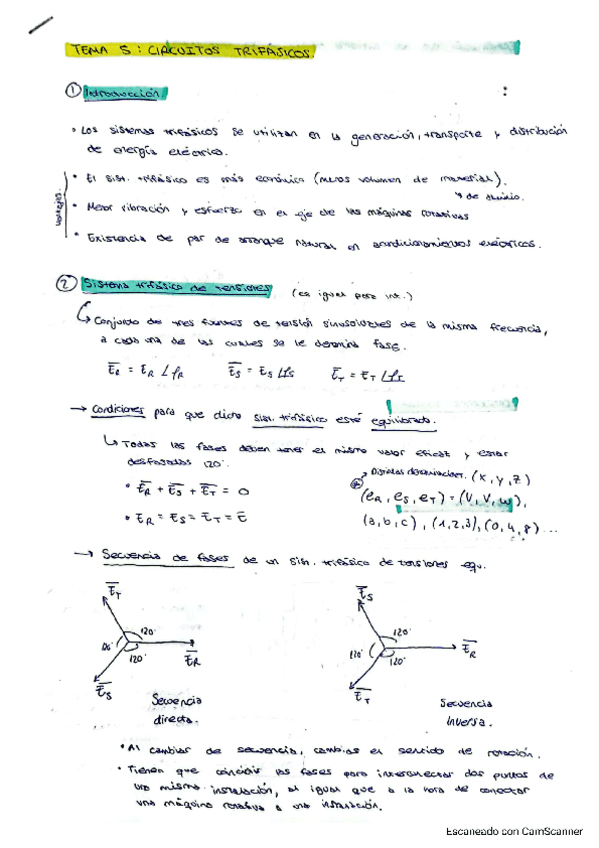 TEMA 5: CIRCUITOS TRIFÁSICOS.
① Introducción
• Los sistemas trifásicos se utilizan en la generación, transporte y distribución
de energía eléctrica.
ventajas
• El sist. trifásico es más económico (menos volumen de material).
↳ de
• Menor vibración y esfuerzo en el eje de las máquinas rotativas
• Existencia de par de arranque natural en accionamientos eléctricos.
② Sistema trifásico de tensiones (es igual para int.)
↳ Conjunto de tres fuentes de tensión sinusoidales de la misma frecuencia,
a cada una de las cuales se le denomina fase.
E̅R = ER ∠φR E̅S = ES ∠φS E̅T = ET ∠φT
→ Condiciones para que dicho sist. trifásico esté equilibrado.
↳ Todas las fases deben tener el mismo valor eficaz y estar
desfasadas 120°.
• E̅R + E̅S + E̅T = 0
• ER = ES = ET = E
→ Distintas denominaciones. (x, y, z)
(eR, eS, eT) = (U, V, W),
(a, b, c), (1, 2, 3), (0, 4, 8) ...
→ Secuencia de fases de un sist. trifásico de tensiones equ.
E̅T
120°
120°
120°
E̅R
E̅S
Secuencia
directa.
E̅S
120°
120°
120°
E̅R
E̅T
Secuencia
inversa.
• Al cambiar de secuencia, cambias el sentido de rotación.
• Tienen que coincidir las fases para interconectar dos puntos de
una misma instalación, al igual que a la hora de conectar
una máquina rotativa a una instalación.
Escaneado con CamScanner